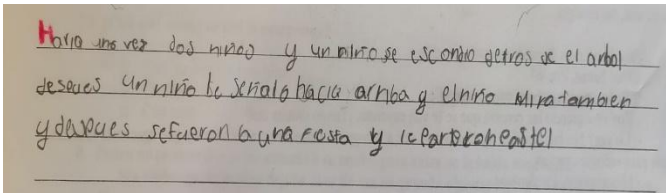 Havia una vez dos niños y un niño se escondio detros de el arbol
desoues un niño le señaló hacia arriba y elniño Mira tambien
y despues sefueron a una fiesta y lepartieronpastel